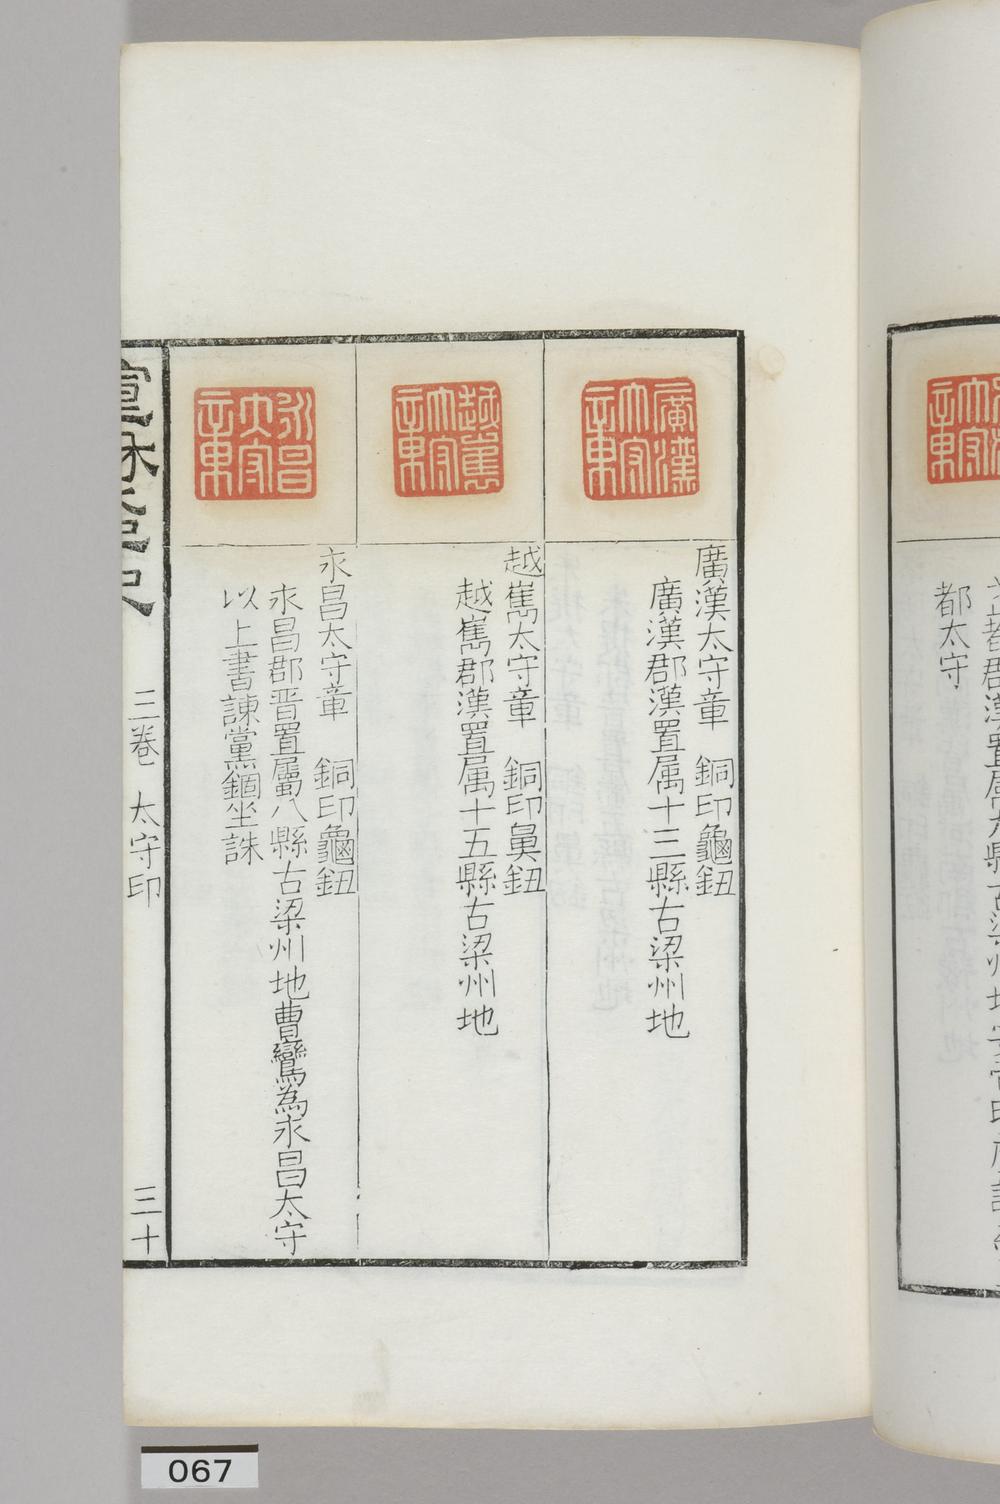 都太守
廣漢太守章
廣漢太守章　銅印龜鈕
廣漢郡漢置属十三縣古梁州地
越嶲太守章
越嶲太守章　銅印鼻鈕
越嶲郡漢置属十五縣古梁州地
永昌太守章
永昌太守章　銅印龜鈕
永昌郡晋置屬八縣古梁州地曹鸞為永昌太守
以上書諫黨錮坐誅
宣和
三卷　太守印　三十
067